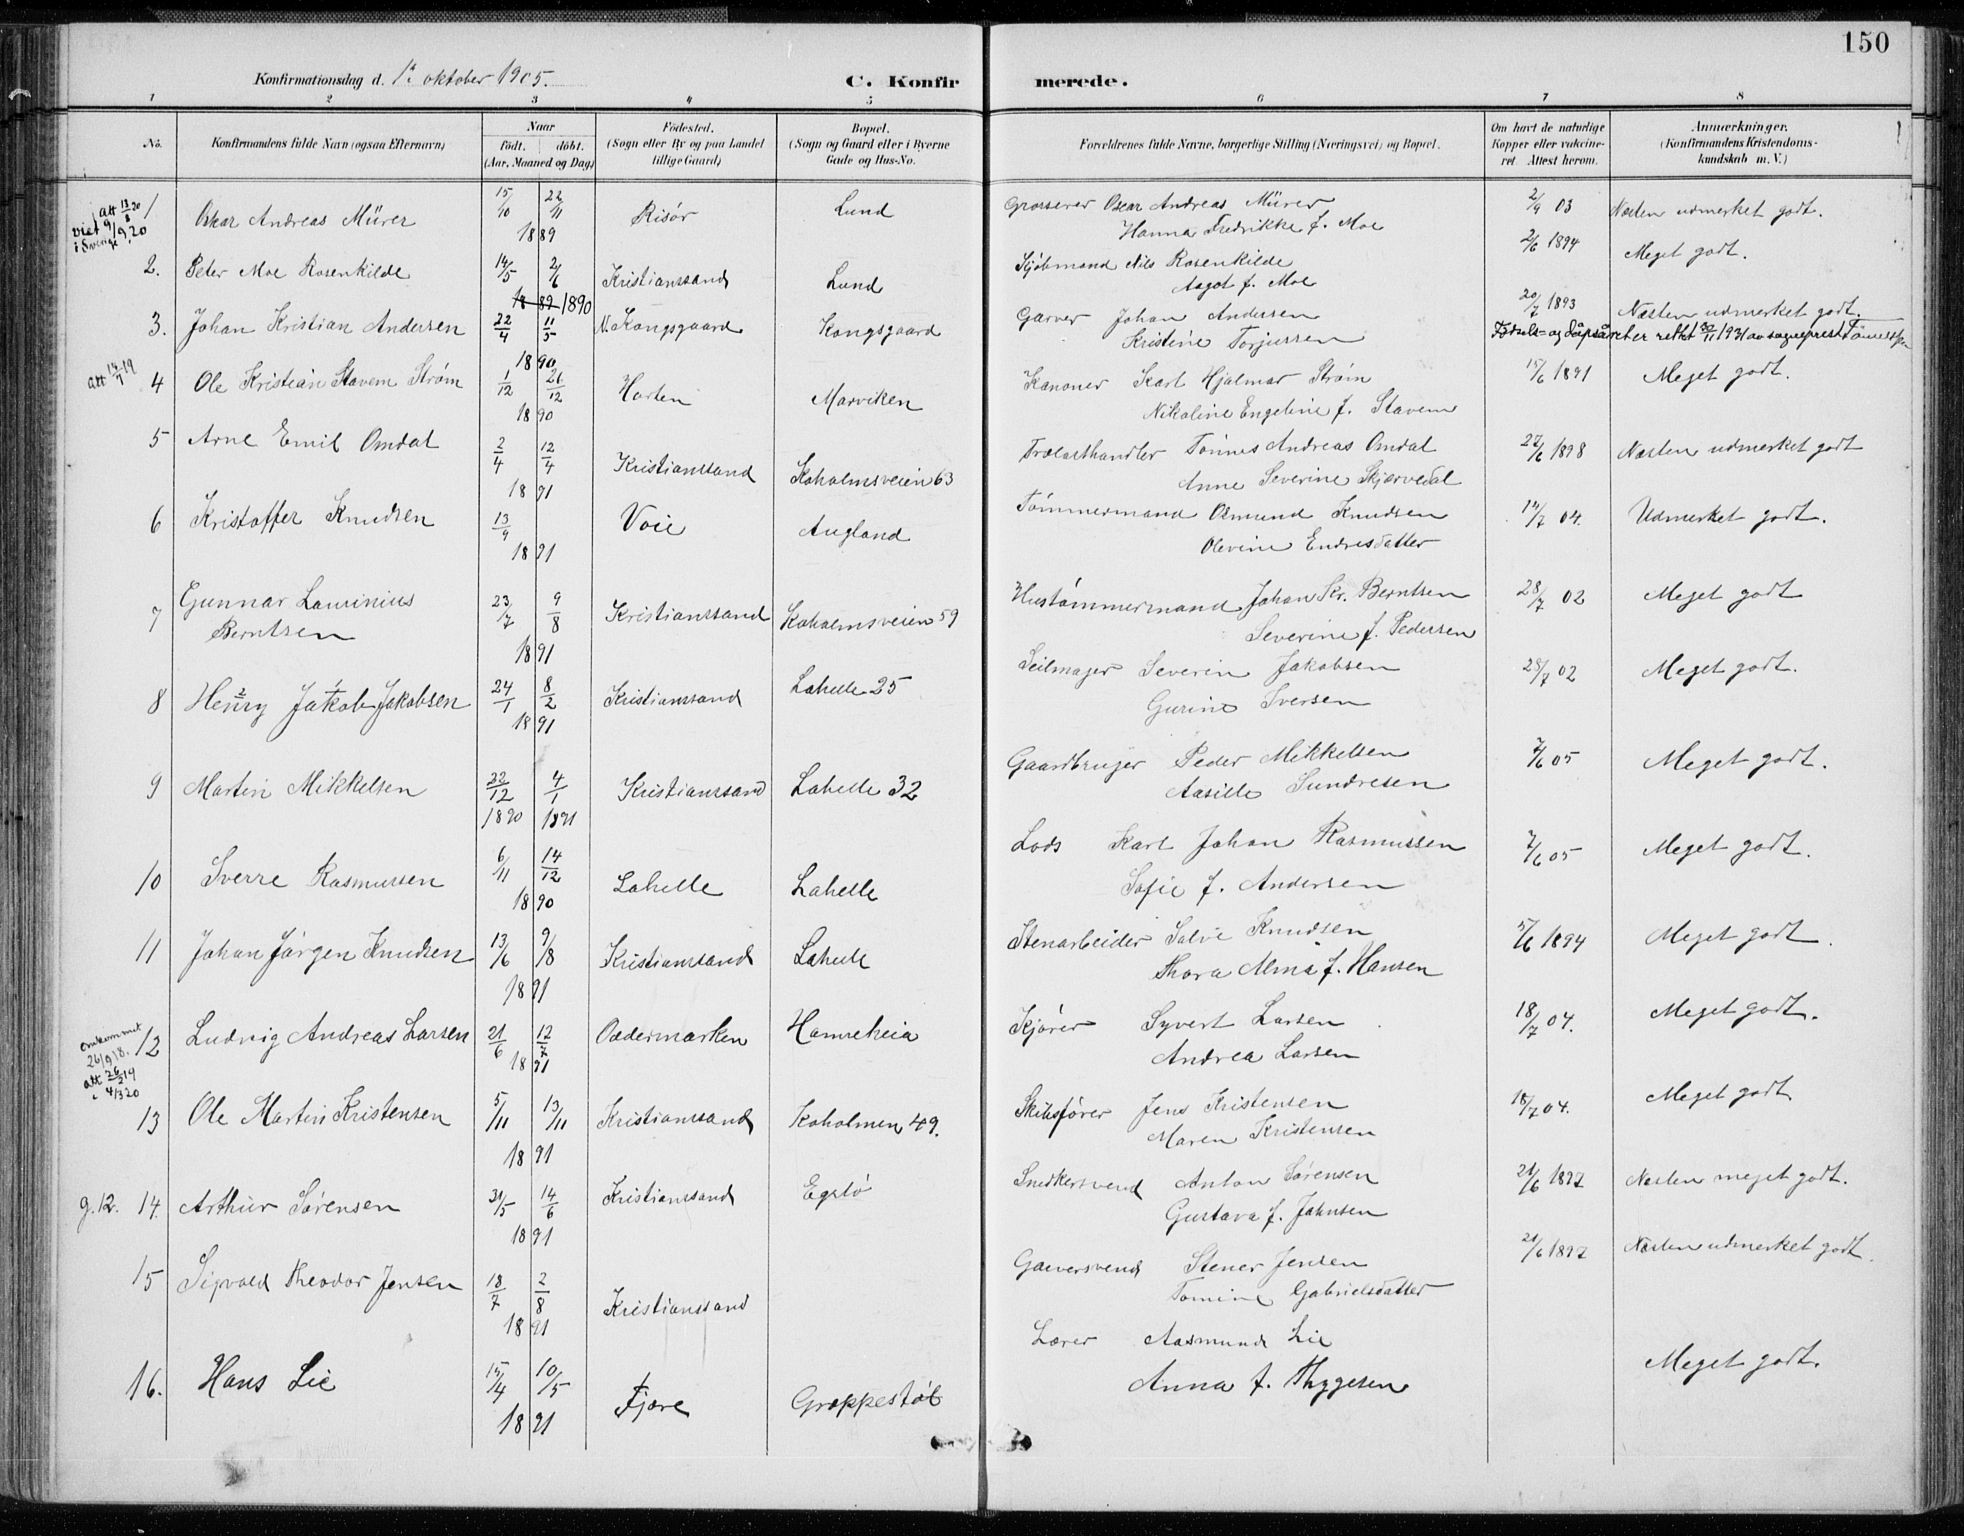 150
Konfirmationsdag d. 1ste oktober 1905.
C. Konfirmerede.
1 2 3 4 5 6 7 8
No. Konfirmandens fulde Navn (ogsaa Efternavn) Naar födt. döbt. (Aar, Maaned og Dag) Födested. (Sogn eller By og paa Landet tillige Gaard) Bopæl. (Sogn og Gaard eller i Byerne Gade og Hus-No. Forældrenes fulde Navne, borgerlige Stilling (Næringsvei) og Bopæl. Om havt de naturlige Kopper eller vaccineret. Attest herom. Anmærkninger. (Konfirmandens Kristendomskundskab m. V.)
att 13/8 20
viet 9/9 20
i Sverige
1 Oskar Andreas Mürer 15/10 22/11 1889 Risör Lund Grosserer Oscar Andreas Mürer 2/9 03 Næsten udmerket godt.
Hanna Fredrikke f. Moe
2. Peter Moe Rosenkilde 14/5 2/6 1889 1890 Kristianssand Lund Kjöbmand Nils Rosenkilde 2/6 1894 Meget godt.
Aagot f. Moe
3. Johan Kristian Andersen 22/4 11/5 1890 N. Kongsgaard Kongsgaard Garver Johan Andersen 20/7 1893 Næsten udmerket godt.
Kristine Torjussen Fødsels- og dåpsåret er rettet 30/11 1931 av sogneprest
att 14/7 19
4 Ole Kristian Stavem Strøm 1/12 26/12 1890 Horten Marviken Kanoner Karl Hjalmar Strøm 15/6 1891 Meget godt.
Nikoline Engeline f. Stavem
5 Arne Emil Omdal 2/4 12/4 1891 Kristianssand Koholmsveien 63 Trælasthandler Tönnes Andreas Omdal 27/6 1898 Næsten udmerket godt
Anne Severine Skjærvedal
6 Kristoffer Knudsen 13/9 1891 Voie Augland Tömmermand Osmund Knudsen 14/7 04. Udmerket godt.
Olevine Endresdatter
7 Gunnar Laurinius Berntsen 23/7 9/8 1891 Kristianssand Koholmsveien 59 Hustömmermand Johan Kr. Berntsen 28/7 02 Meget godt
Severine f. Pedersen
8 Henry Jakob Jakobsen 24/1 8/2 1891 Kristianssand Lahelle 25 Seilmager Severin Jakobsen 28/7 02 Meget godt.
Gurine Iversen
9 Martin Mikkelsen 22/12 1890 4/1 1891 Kristianssand Lahelle 32 Gaardbruger Peder Mikkelsen 7/6 05 Meget godt.
Aasille Sundresen
10 Sverre Rasmussen 6/11 14/12 1890 Lahelle Lahelle Lods Karl Johan Rasmussen 7/6 05 Meget godt.
Sofie f. Andersen
11 Johan Jörgen Knudsen 13/6 9/8 1891 Kristianssand Lahelle Stenarbeider Salve Knudsen 5/6 1894 Meget godt.
Thora Alma f. Hansen
omkommet
26/9 18.
att 26/2 19
4/3 20
12 Ludvig Andreas Larsen 21/6 12/7 1891 Oddermarken Hamreheia Kjörer Syvert Larsen 18/7 04. Meget godt.
Andrea Larsen
13 Ole Martin Kristensen 5/11 13/11 1891 Kristianssand Koholmen 49. Skibsförer Jens Kristensen 18/7 04. Meget godt
Maren Kristensen
g.12. 14. Arthur Sörensen 31/5 14/6 1891 Kristianssand Egstö Snedkersvend Anton Sörensen 21/6 1897 Næsten meget godt.
Gustava f. Jahnsen
15 Sigvald Theodor Jensen 18/7 2/8 1891 Kristianssand Garversvend Stener Jensen 21/6 1897 Næsten udmerket godt.
Tomine Gabrielsdatter
16. Hans Lie 15/4 10/5 1891 Fjære Groppestöl Lærer Aasmund Lie Meget godt.
Anna f. Thygesen